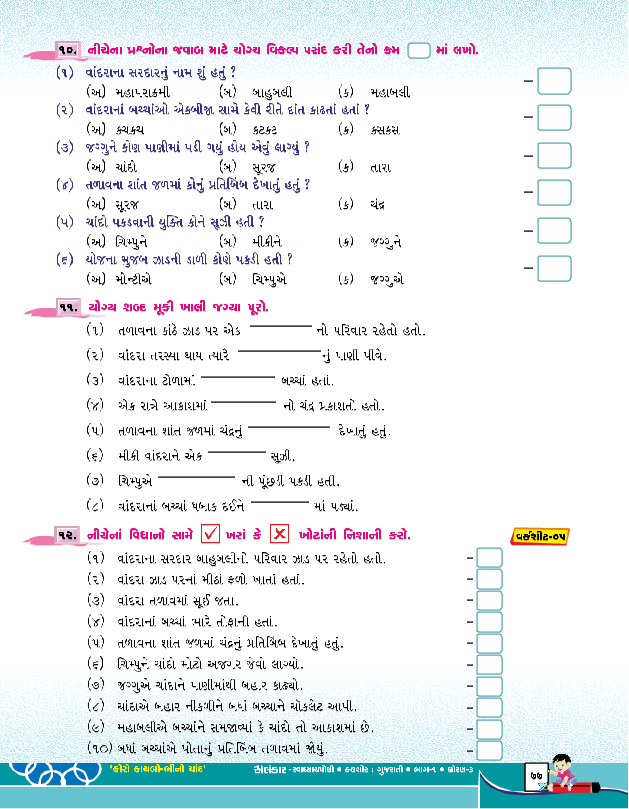 ૧૦. નીચેના પ્રશ્નોના જવાબ માટે યોગ્ય વિકલ્પ પસંદ કરી તેનો ક્રમ માં લખો.
(૧) વાંદરાના સરદારનું નામ શું હતું ?
(અ) મહાપરાક્રમી (બ) બાહુબલી (ક) મહાબલી
(૨) વાંદરાનાં બચ્ચાંઓ એકબીજા સામે કેવી રીતે દાંત કાઢતાં હતાં ?
(અ) ક્ચક્ચ (બ) કટકટ (ક) કસકસ
(૩) જગ્ગુને કોણ પાણીમાં પડી ગયું હોય એવું લાગ્યું ?
(અ) ચાંદો (બ) સૂરજ (ક) તારા
(૪) તળાવના શાંત જળમાં કોનું પ્રતિબિંબ દેખાતું હતું ?
(અ) સૂરજ (બ) તારા (ક) ચંદ્ર
(૫) ચાંદો પકડવાની યુક્તિ કોને સૂઝી હતી ?
(અ) ચિમ્પુને (બ) મીકીને (ક) જગ્ગુને
(૬) યોજના મુજબ ઝાડની ડાળી કોણે પકડી હતી ?
(અ) મોન્ટીએ (બ) ચિમ્પુએ (ક) જગ્ગુએ
૧૧. યોગ્ય શબ્દ મૂકી ખાલી જગ્યા પૂરો.
(૧) તળાવના કાંઠે ઝાડ પર એક ________ નો પરિવાર રહેતો હતો.
(૨) વાંદરા તરસ્યા થાય ત્યારે ________ નું પાણી પીવે.
(૩) વાંદરાના ટોળામાં ________ બચ્ચાં હતાં.
(૪) એક રાત્રે આકાશમાં ________ નો ચંદ્ર પ્રકાશતો હતો.
(૫) તળાવના શાંત જળમાં ચંદ્રનું ________ દેખાતું હતું.
(૬) મીકી વાંદરાને એક ________ સૂઝી.
(૭) ચિમ્પુએ ________ ની પૂંછડી પકડી હતી.
(૮) વાંદરાનાં બચ્ચાં ધબાક દઈને ________ માં પડ્યાં.
૧૨. નીચેનાં વિધાનો સામે ✓ ખરાં કે ✗ ખોટાંની નિશાની કરો. વર્કશીટ-૦૫
(૧) વાંદરાના સરદાર બાહુબલીનો પરિવાર ઝાડ પર રહેતો હતો.
(૨) વાંદરા ઝાડ પરનાં મીઠાં ફળો ખાતાં હતાં.
(૩) વાંદરા તળાવમાં સૂઈ જતા.
(૪) વાંદરાનાં બચ્ચાં ભારે તોફાની હતાં.
(૫) તળાવના શાંત જળમાં ચંદ્રનું પ્રતિબિંબ દેખાતું હતું.
(૬) ચિમ્પુને ચાંદો મોટો અજગર જેવો લાગ્યો.
(૭) જગ્ગુએ ચાંદાને પાણીમાંથી બહાર કાઢ્યો.
(૮) ચાંદાએ બહાર નીકળીને બધાં બચ્ચાંને ચોકલેટ આપી.
(૯) મહાબલીએ બચ્ચાંને સમજાવ્યાં કે ચાંદો તો આકાશમાં છે.
(૧૦) બધાં બચ્ચાંએ પોતાનું પ્રતિબિંબ તળાવમાં જોયું.
અલંકાર - સ્વાધ્યાયપોથી • કલશોર : ગુજરાતી • ભાગ-૧ • ધોરણ-૩
૭૭